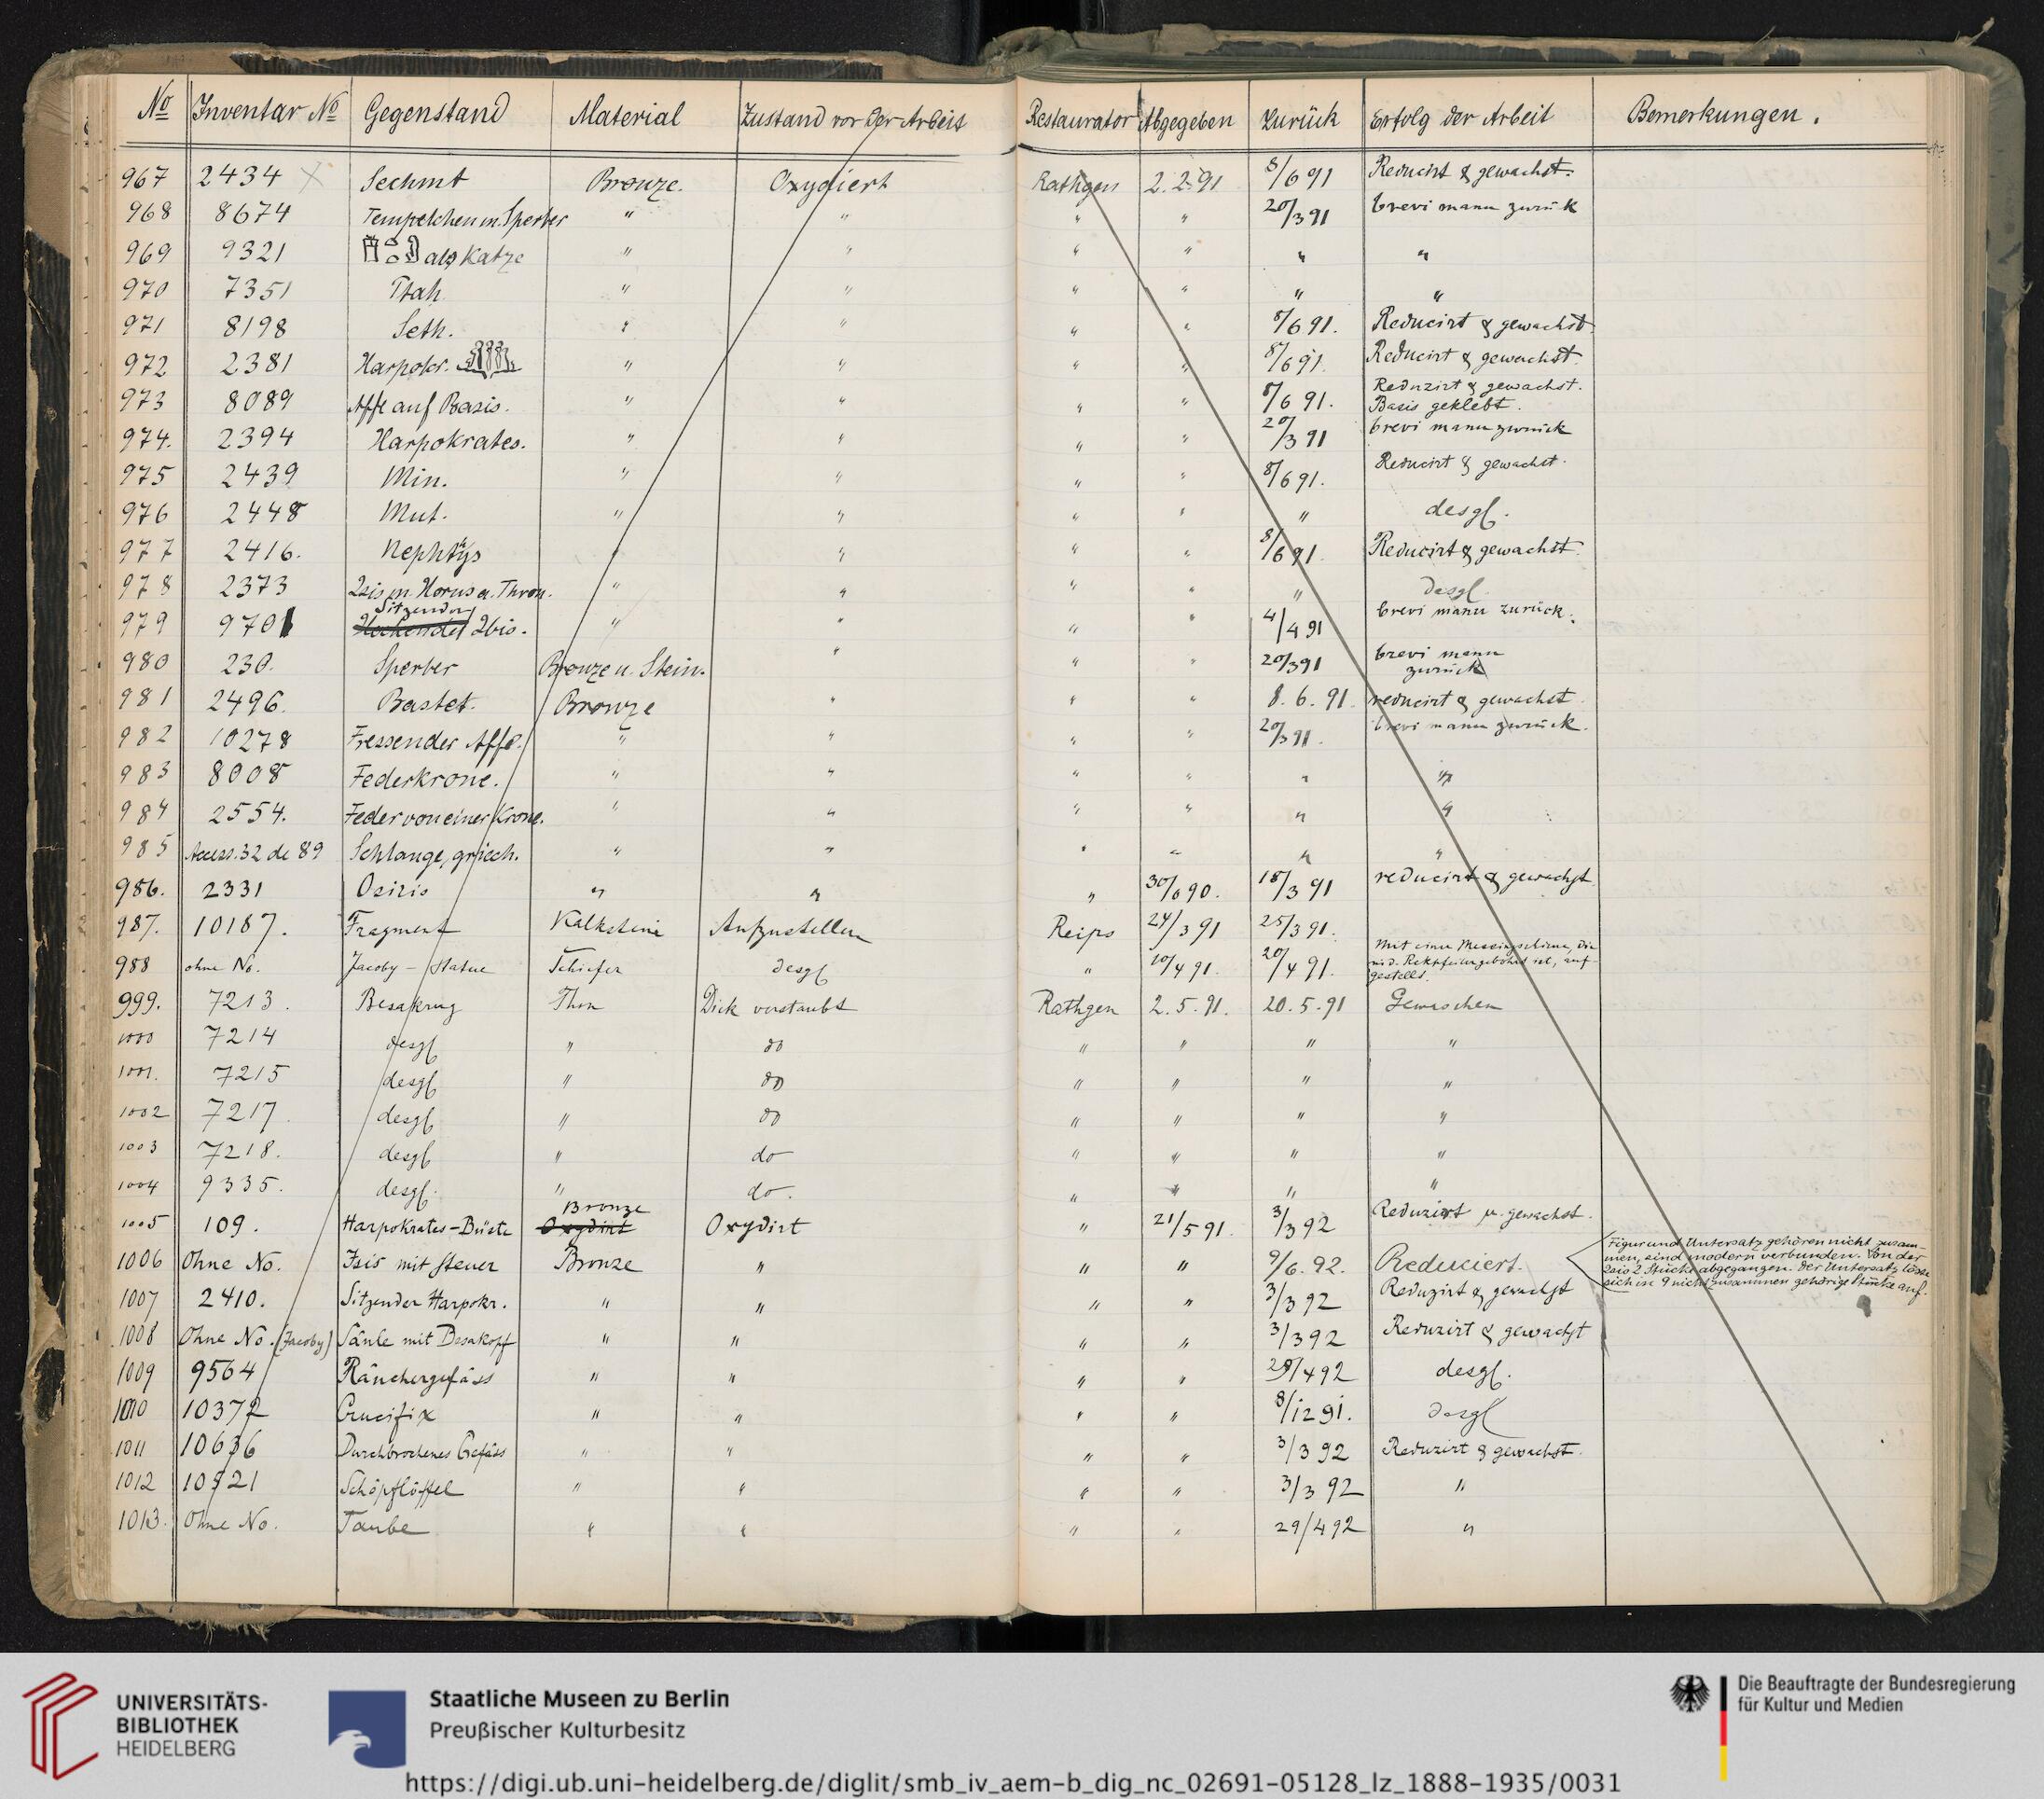 No Inventar No Gegenstand Material Zustand vor der Arbeit Restaurator Abgegeben Zurück Erfolg der Arbeit Bemerkungen.
967 2434 Sechmt Bronze. Oxydiert Rathgen 2.2.91 8/6 91 Reducirt & gewachst.
968 8674 Tempelchen m. Sperber " " " " 20/3 91 brevi manu zurück
969 9321 als Katze " " " " " "
970 7351 Ptah " " " " " "
971 8198 Seth. " " " " 8/6 91. Reducirt & gewachst
972 2381 Harpokr. " " " " 8/6 91. Reducirt & gewachst
973 8089 Affe auf Basis. " " " " 8/6 91. Reduzirt & gewachst.
Basis geklebt.
974. 2394 Harpokrates. " " " " 20/3 91 brevi manu zurück
975 2439 Min. " " " " 8/6 91. Reducirt & gewachst.
976 2448 Mut. " " " " " desgl.
977 2416. Nephtys " " " " 8/6 91. Reducirt & gewachst.
978 2373 Isis m. Horus a. Thron. " " " " " desgl.
979 9701 Sitzender Ibis. " " " " 4/4 91 brevi manu zurück.
980 230. Sperber Bronze u. Stein. " " " 20/3 91 brevi manu
zurück
981 2496. Bastet. Bronze " " " 8. 6. 91. reducirt & gewachst
982 10278 Fressender Affe. " " " " 20/3 91. brevi manu zurück.
983 8008 Federkrone. " " " " " "
984 2554. Feder von einer Krone. " " " " " "
985 Access. 32 de 89 Schlange, griech. " " " " " "
986. 2331 Osiris " " " 30/6 90. 18/3 91 reducirt & gewachst
987. 10187. Fragment Kalkstein Aufzustellen Reips 24/3 91 25/3 91.
988 ohne No. Jacoby - Statue Schiefer desgl " 10/4 91. 20/4 91. Mit einer Messingschiene, die
in d. Rückpfeiler gebohrt ist, auf-
gestellt.
999. 7213. Besakrug Thon Dick verstaubt Rathgen 2.5.91. 20.5.91 Gewaschen
1000 7214 desgl " do " " " "
1001. 7215 desgl " do " " " "
1002 7217 desgl " do " " " "
1003 7218. desgl " do " " " "
1004 9335. desgl. " do. " " " "
1005 109. Harpokrates-Büste Oxydirt Bronze Oxydirt " 21/5 91. 3/3 92 Reduzirt u. gewachst.
1006 Ohne No. Isis mit Steuer Bronze " " " 9/6. 92. Reduciert. Figur und Untersatz gehören nicht zusam-
men, sind modern verbunden. Von der
Isis 2 Stücke abgegangen. Der Untersatz löste
sich in 9 nicht zusammen gehörige Stücke auf.
1007 2410. Sitzender Harpokr. " " " " 3/3 92 Reduzirt & gewachst
1008 Ohne No. (Jacoby) Säule mit Besakopf " " " " 3/3 92 Reduzirt & gewachst
1009 9564 Räuchergefäss " " " " 29/4 92 desgl.
1010 10372 Crucifix " " " " 8/12 91. desgl
1011 10636 Durchbrochenes Gefäss " " " " 3/3 92 Reduzirt & gewachst.
1012 10521 Schöpflöffel " " " " 3/3 92 "
1013. Ohne No. Taube " " " " 29/4 92 "
UNIVERSITÄTS-
BIBLIOTHEK
HEIDELBERG
Staatliche Museen zu Berlin
Preußischer Kulturbesitz
Die Beauftragte der Bundesregierung
für Kultur und Medien
https://digi.ub.uni-heidelberg.de/diglit/smb_iv_aem-b_dig_nc_02691-05128_lz_1888-1935/0031